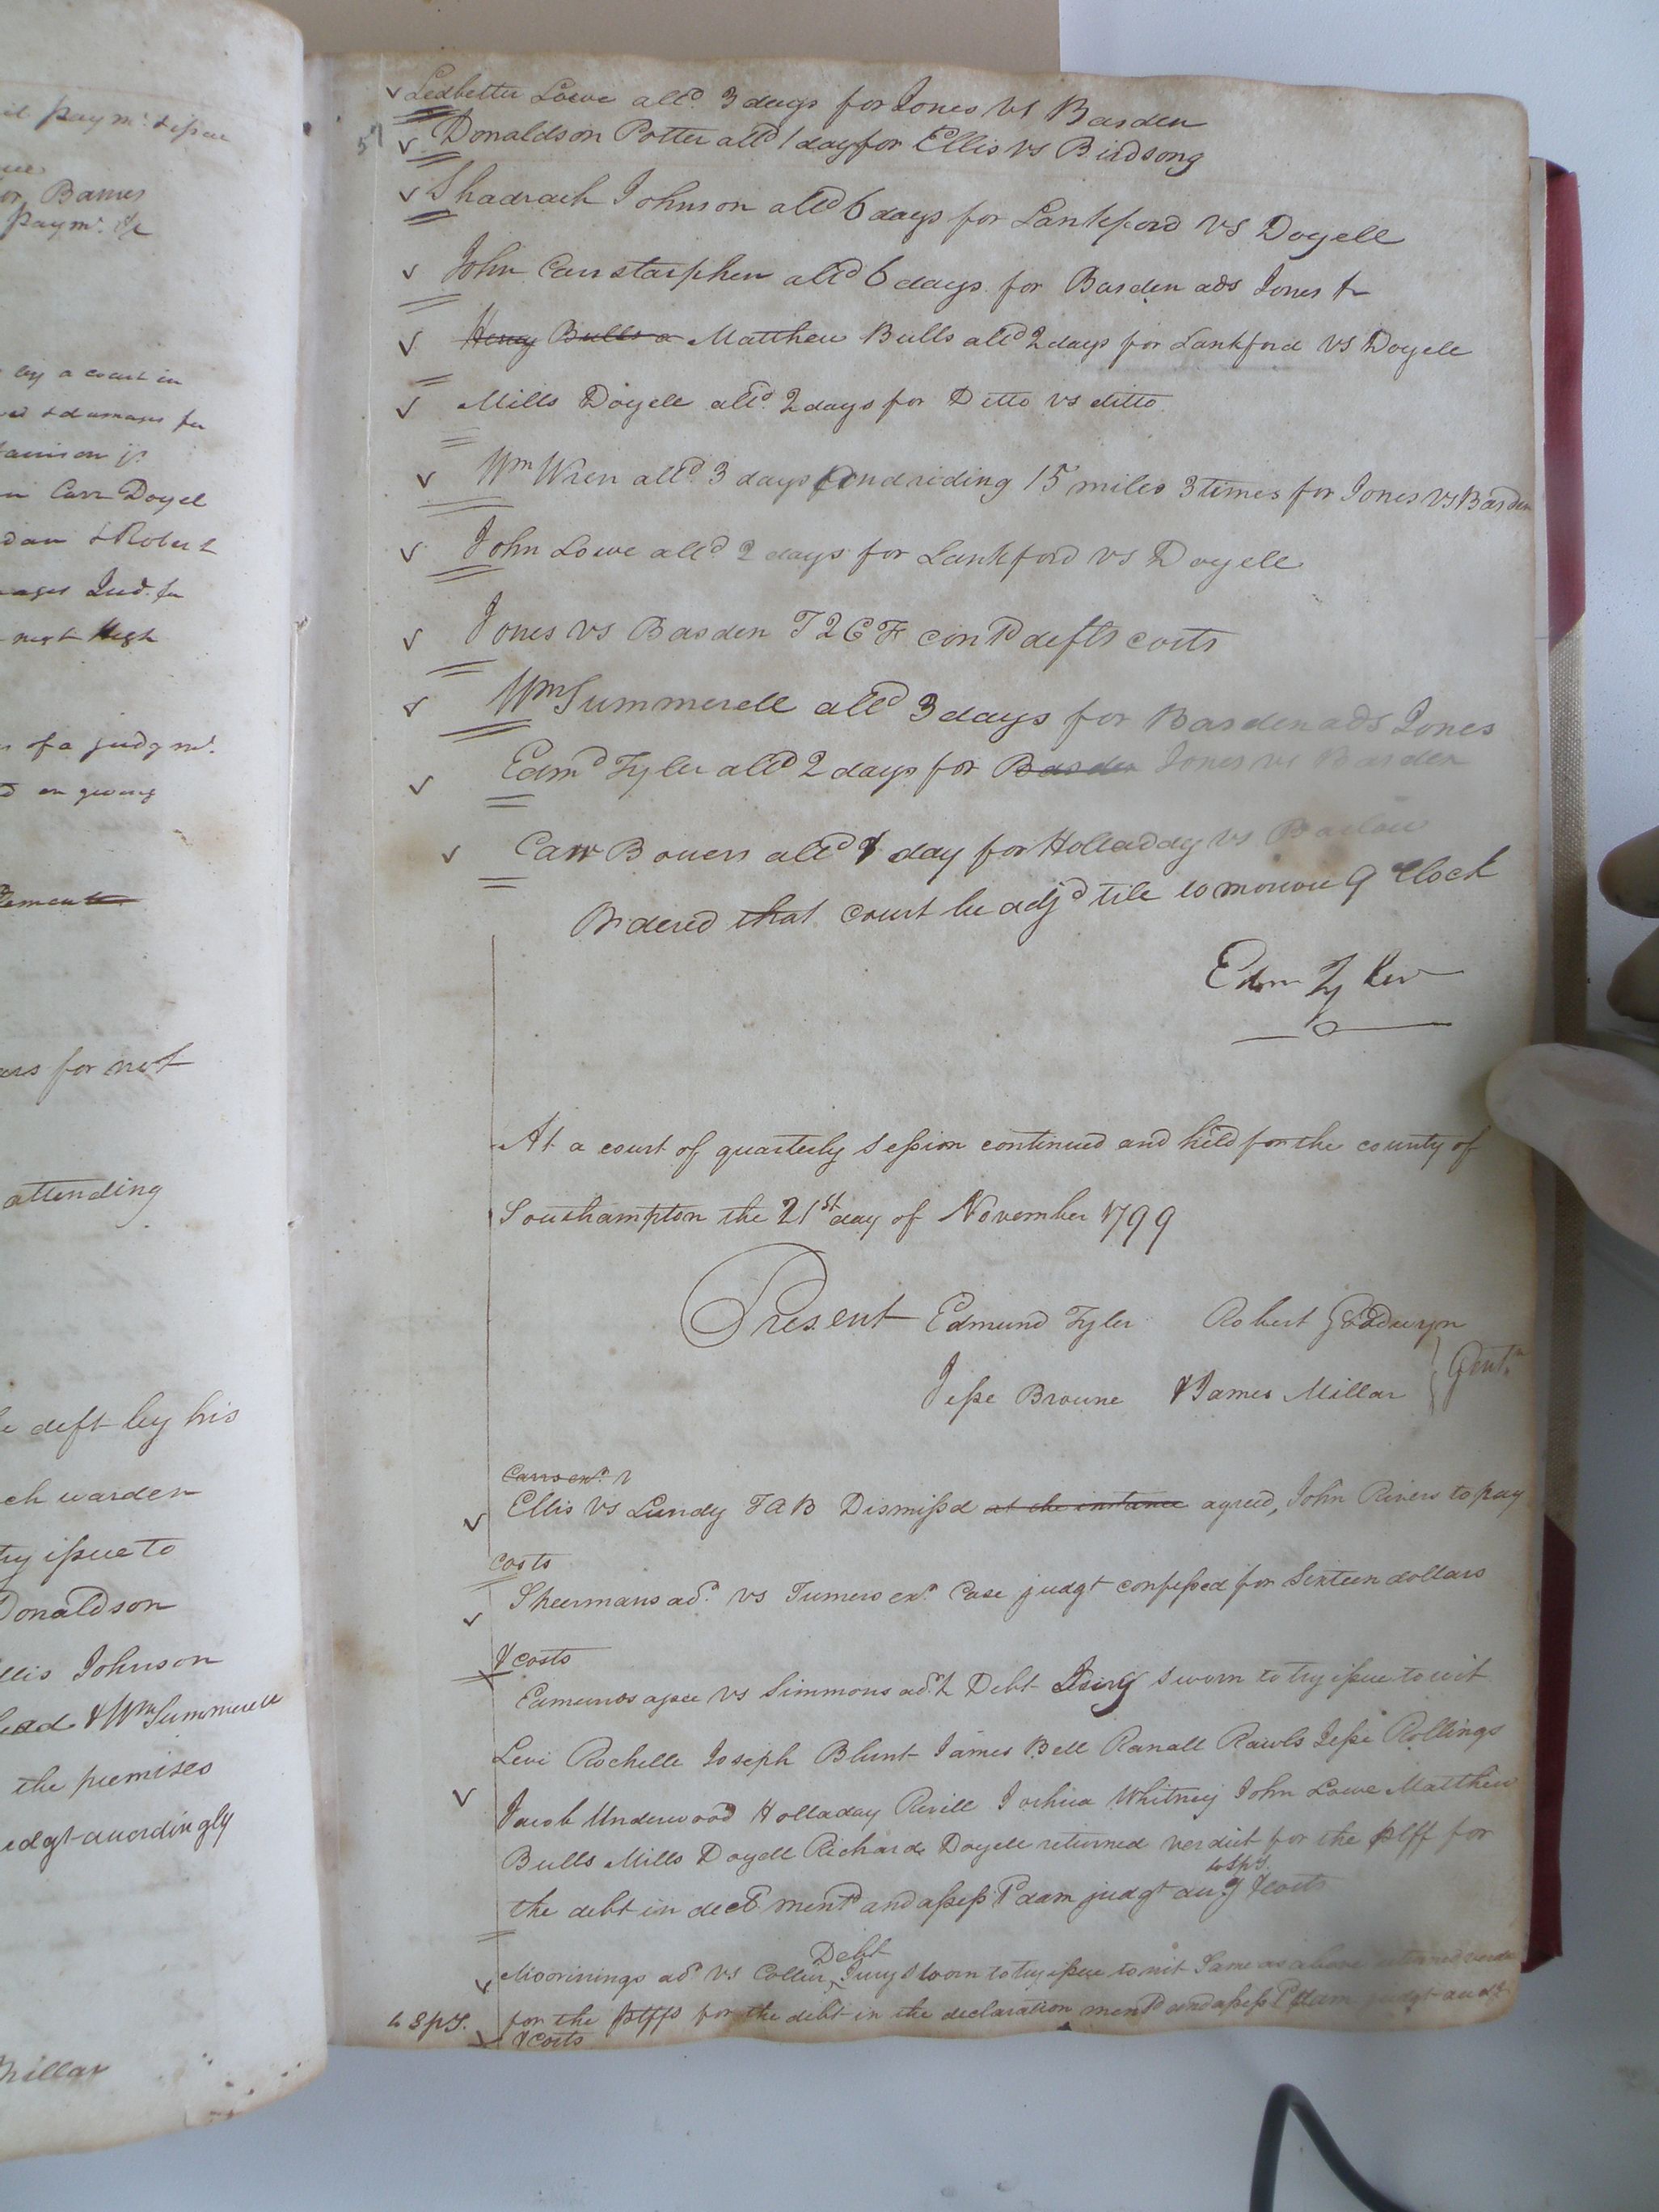 il paym.t & issue
or, Barnes
paym.t &c
by a court in
& damages for
n Carr Doyel
dan & Robert
ages Jud.t for
next high
of a judgm.t
on giving
ars for not
attending
e deft by his
ch warden
try issue to
Donaldson
llis Johnson
& Wm Summerell
the premises
udgt accordingly
Millar
57
Ledbetter Lowe alld. 3 days for Jones vs Barden
Donaldson Potter alld 1 day for Ellis vs Birdsong
Shadrach Johnson alld 6 days for Lankford vs Doyell
John Carrstarphen alld 6 days for Barden ads Jones
Henry Bulls a Matthew Bulls alld 2 days for Lankford vs Doyell
Mills Doyell alld. 2 days for Ditto vs ditto
Wm Wren alld. 3 days and riding 15 miles 3 times for Jones vs Barden
John Lowe alld 2 days for Lankford vs Doyell
Jones vs Barden T 2 C F contd defts costs
Wm Summerell alld 3 days for Barden ads Jones
Edmd Tyler alld 2 days for Barden Jones vs Barden
Carr Bowers alld 1 day for Holladay vs Barlow
Ordered that court be adjd till tomorrow 9 Clock
Edm Tyler
At a court of quarterly session continued and held for the county of
Southampton the 21st day of November 1799
Present Edmund Tyler Robert Goodwyn
Jesse Browne & James Millar Gent.n
Carrs exr. v
Ellis vs Lundy TAB Dismissd at the instance agreed, John Rivers to pay
costs
Sheermans ad.r vs Turners exr. Case judgt confessed for Sixteen dollars
& costs
Edmunds assee vs Simmons ad.x Debt Jury sworn to try issue to wit
Levi Rochelle Joseph Blunt James Bell Ranall Rawls Jesse Rollings
Jacob Underwood Holladay Revill Joshua Whitney John Lowe Matthew
Bulls Mills Doyell Richard Doyell returned verdict for the plff for
the debt in decl mentd and assess 1d dam judgt accg to spy. & costs
Moorinings ad.r vs Collier Debt Jury sworn to try issue to wit Same as above returned verdt
to spy. for the plffs for the debt in the declaration mentd and assess 1d dam judgt accdg
& costs